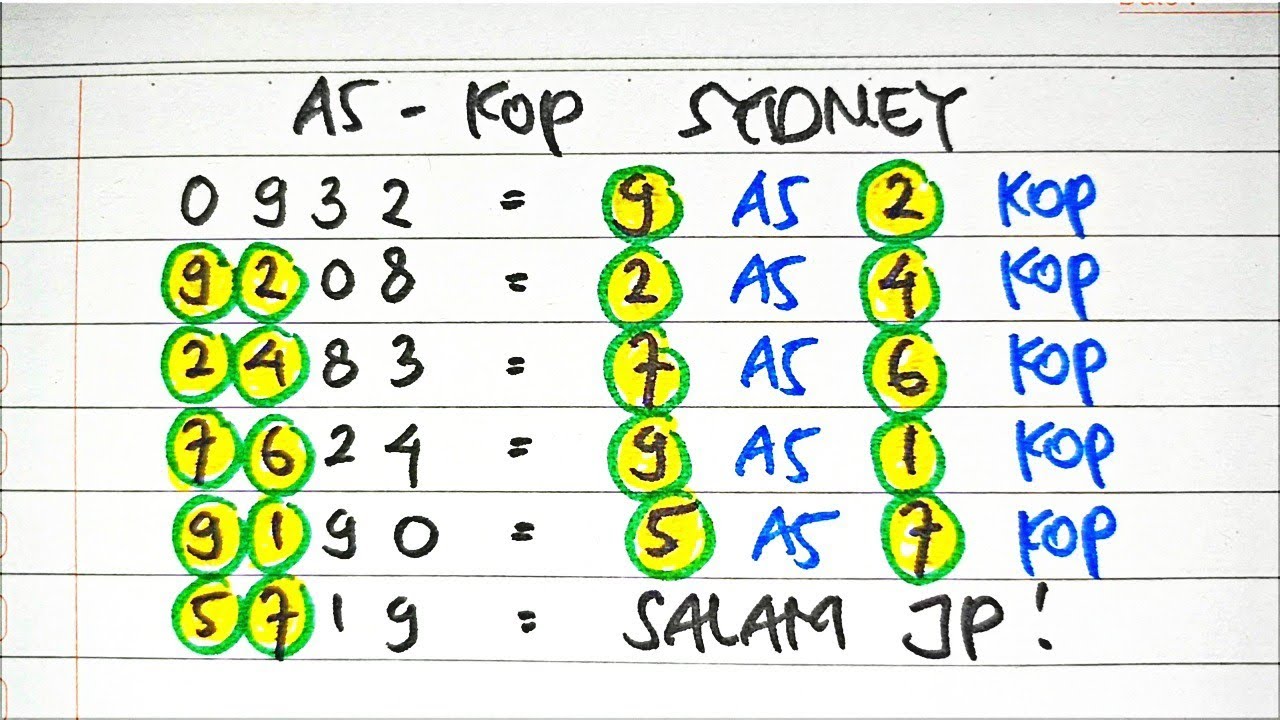 AS - KOP SYDNEY
0932 = 9 AS 2 KOP
9208 = 2 AS 4 KOP
2483 = 7 AS 6 KOP
7624 = 9 AS 1 KOP
9190 = 5 AS 7 KOP
5719 = SALAM JP!